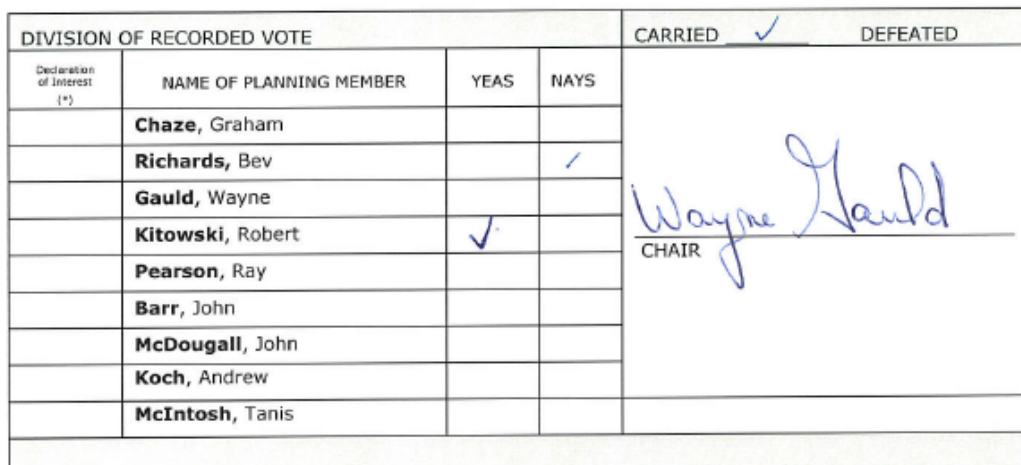 DIVISION OF RECORDED VOTE
CARRIED ✓ DEFEATED
Declaration of Interest (*)
NAME OF PLANNING MEMBER
YEAS
NAYS
Chaze, Graham
Richards, Bev ✓
Gauld, Wayne
Kitowski, Robert ✓
Pearson, Ray
Barr, John
McDougall, John
Koch, Andrew
McIntosh, Tanis
Wayne Gauld
CHAIR